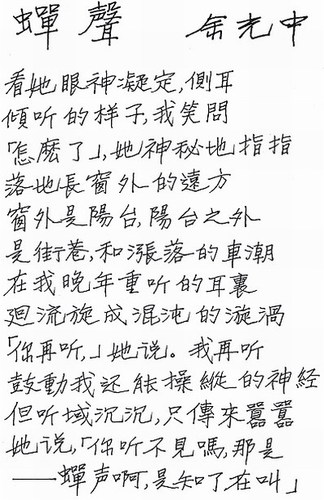 蟬聲 余光中
看她眼神凝定,側耳
傾听的样子,我笑問
「怎麽了」,她神秘地指指
落地長窗外的遠方
窗外是陽台,陽台之外
是街巷,和漲落的車潮
在我晚年重听的耳裏
廻流旋成混沌的漩渦
「你再听,」她说。我再听
鼓動我还能操縱的神经
但听域沉沉,只傳來嚣嚣
她说,「你听不見嗎,那是
——蟬声啊,是知了在叫」